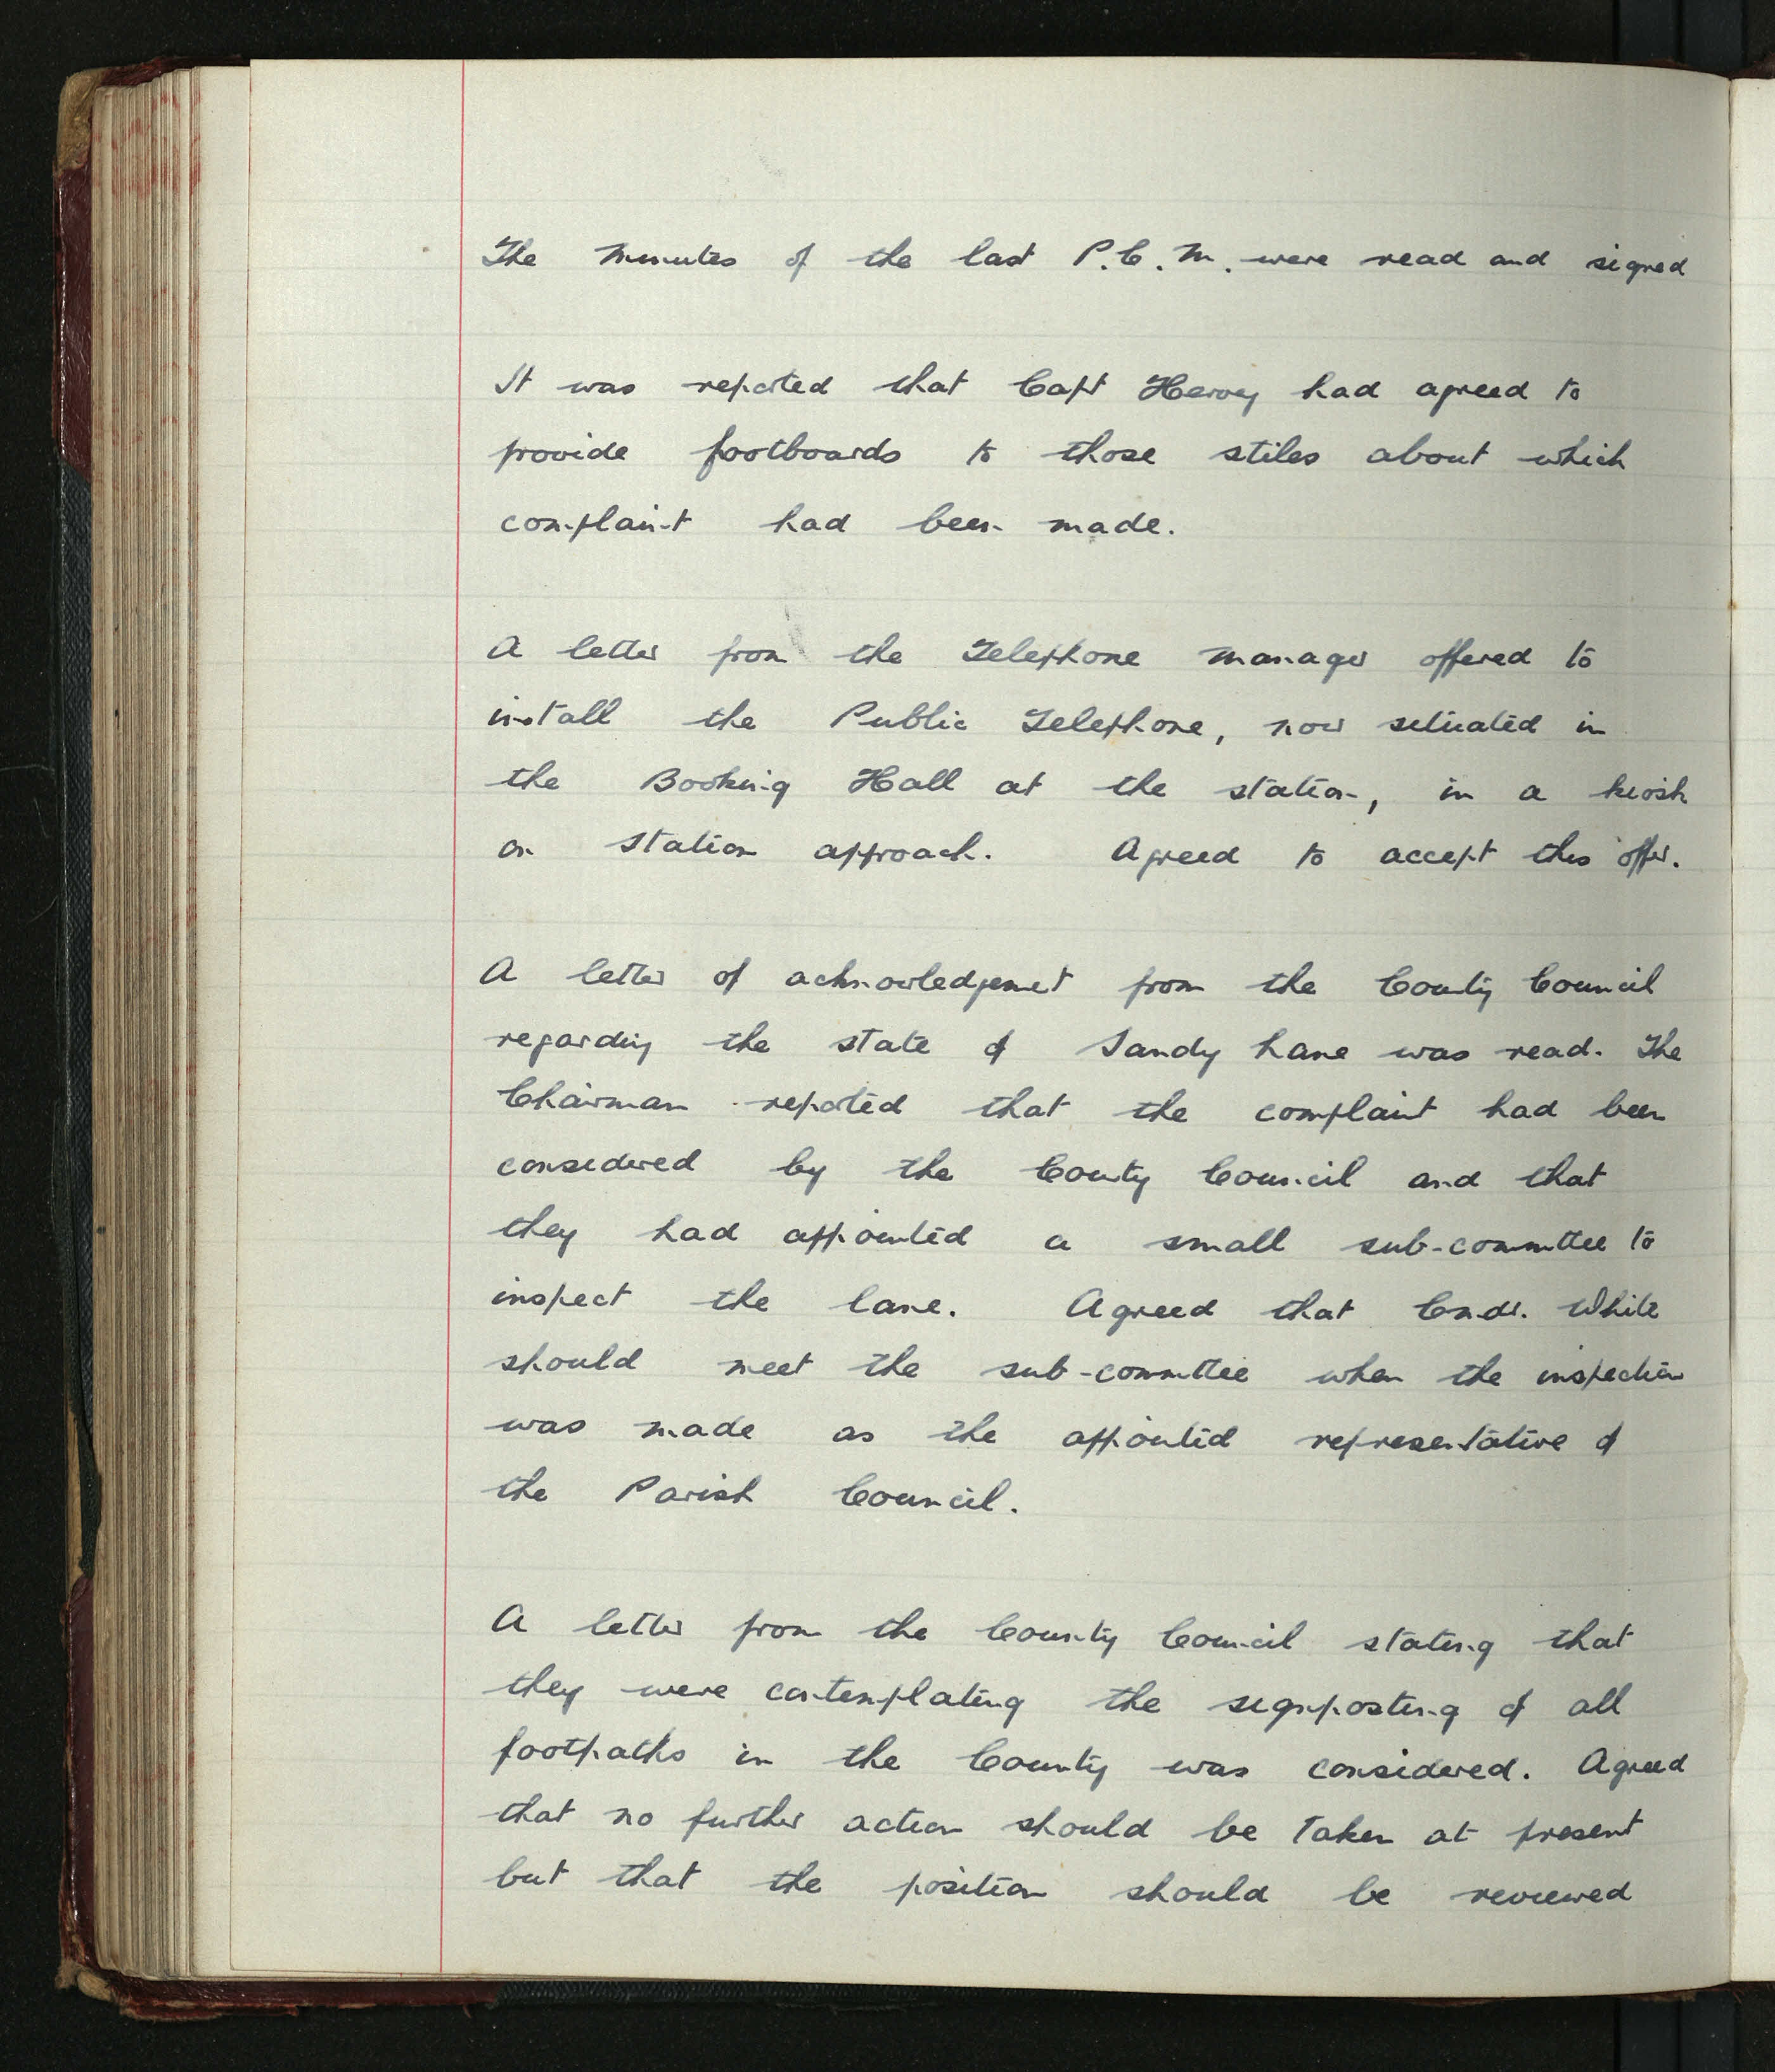 The Minutes of the last P.C.M. were read and signed
It was reported that Capt Hervey had agreed to
provide footboards to those stiles about which
complaint had been made.
A letter from the Telephone Manager offered to
install the Public Telephone, now situated in
the Booking Hall at the station, in a kiosk
on Station approach. Agreed to accept this offer.
A letter of acknowledgement from the County Council
regarding the state of Sandy Lane was read. The
Chairman reported that the complaint had been
considered by the County Council and that
they had appointed a small sub-committee to
inspect the lane. Agreed that Cmdr. White
should meet the sub-committee when the inspection
was made as the appointed representative of
the Parish Council.
A letter from the County Council stating that
they were contemplating the signposting of all
footpaths in the County was considered. Agreed
that no further action should be taken at present
but that the position should be reviewed